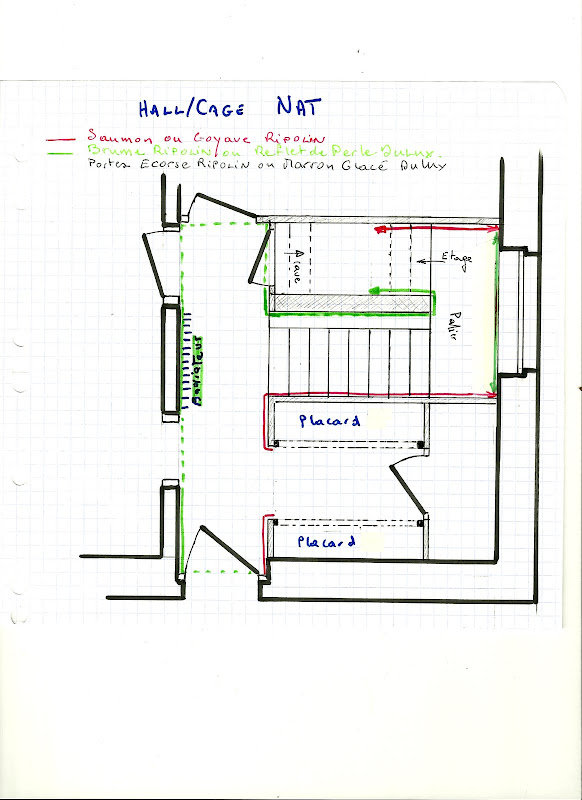 HALL/CAGE NAT
Saumon ou Goyave RIPOLIN
Brume RIPOLIN ou Reflet de Perle DULUX
Portes Ecorse RIPOLIN ou Marron Glacé DULUX
cave
Etage
Palier
Radiateur
Placard
Placard